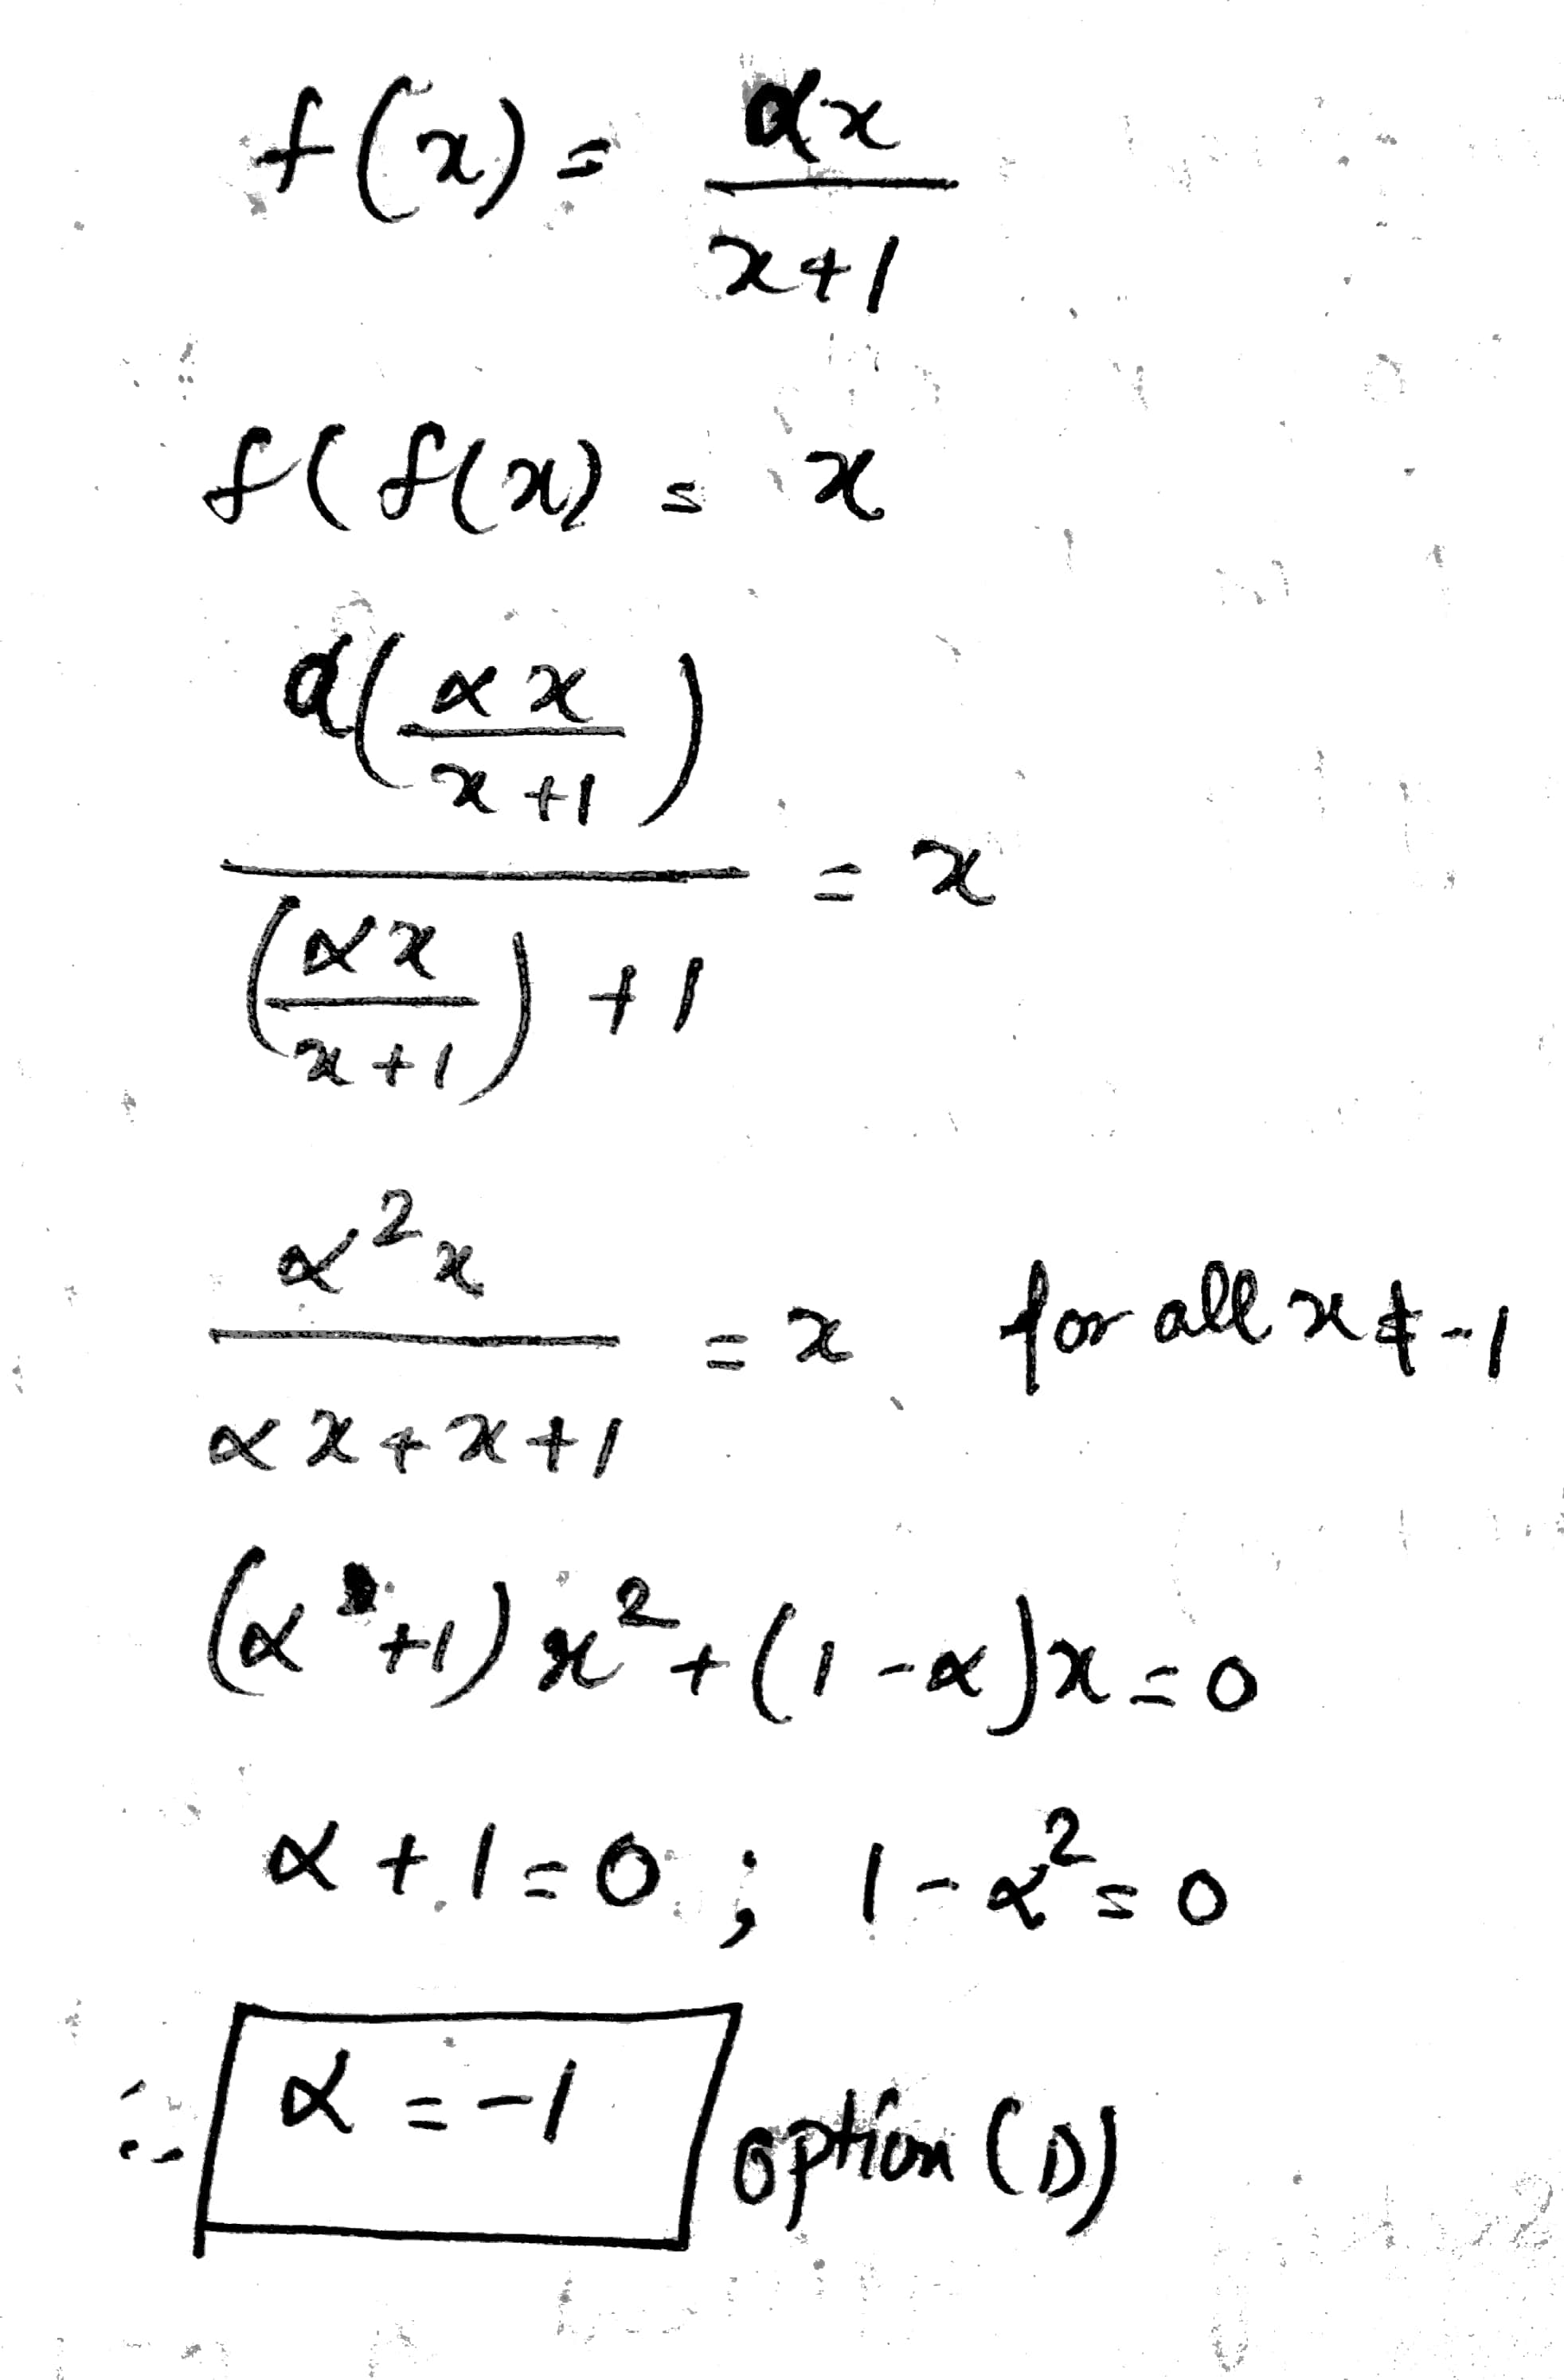 f(x) = αx / x+1
f(f(x) = x
α(αx / x+1) / (αx / x+1) + 1 = x
α²x / αx+x+1 = x for all x ≠ -1
(α+1)x²+(1-α)x=0
α+1=0 ; 1-α²=0
∴ α = -1 option (D)